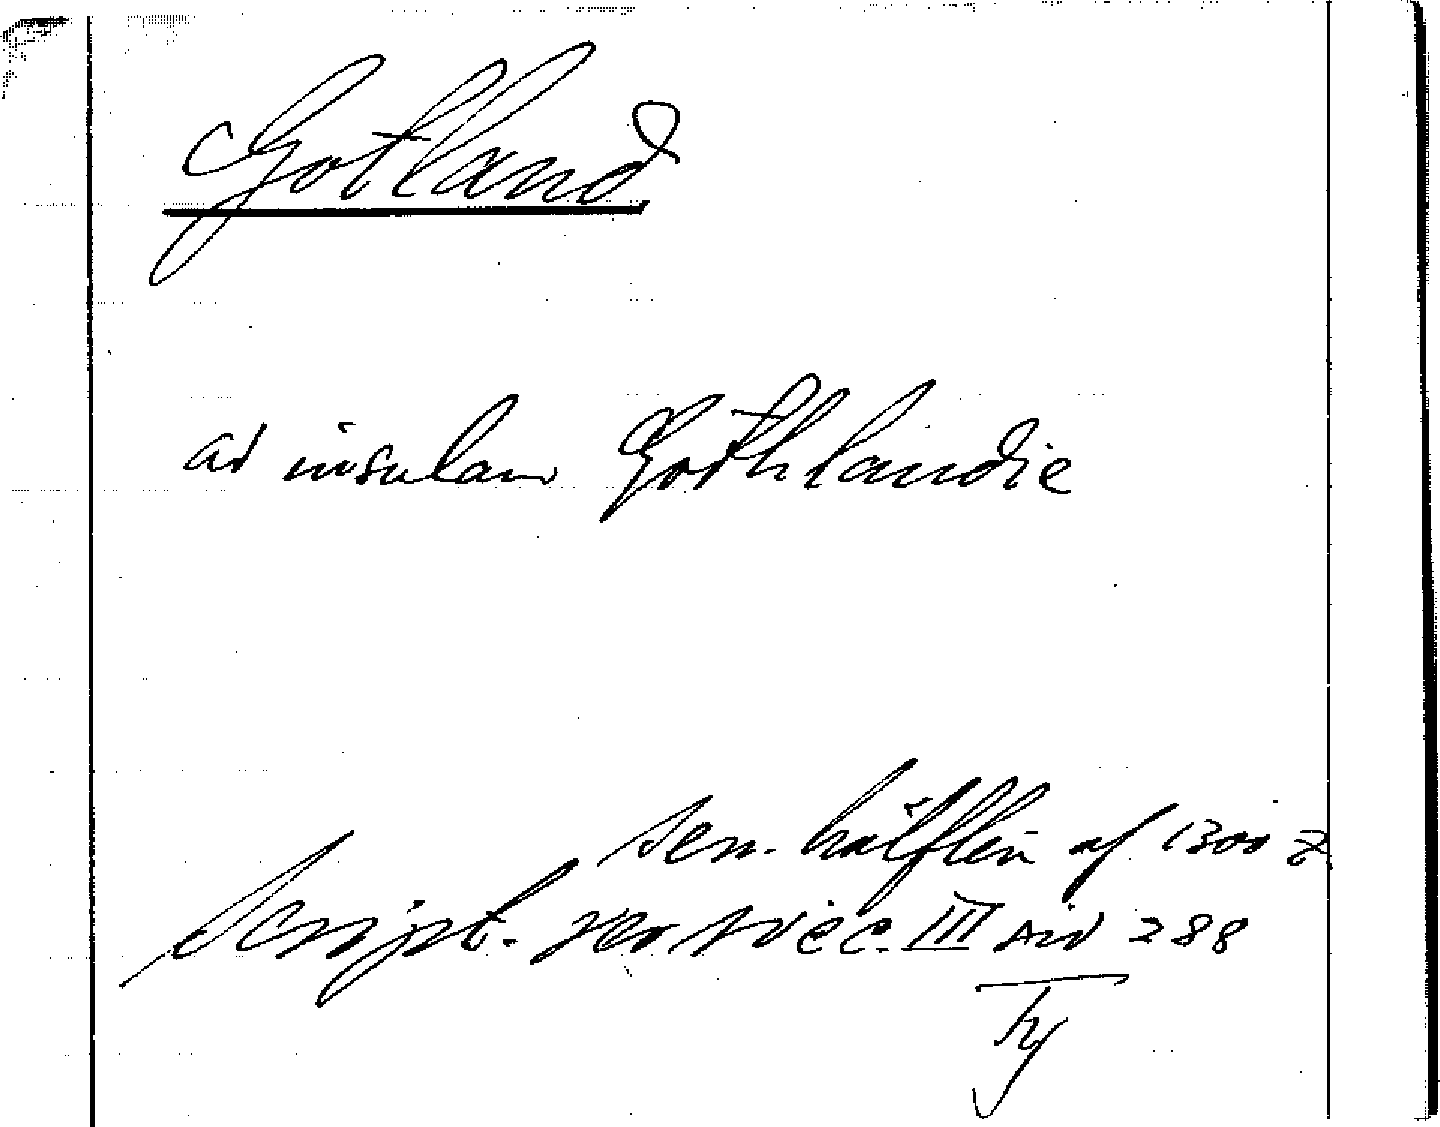 Gotland
ad insulam Gothlandie
sen. hälften af 1300 t.
Script. rer. svec. III sid 288